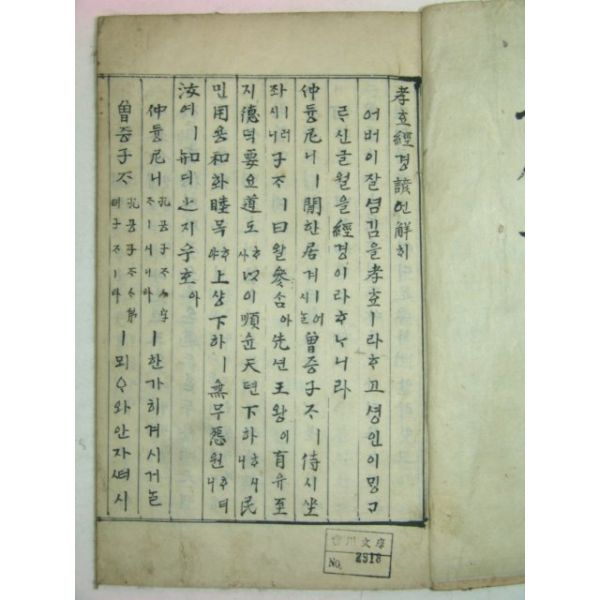 孝효經경諺언解ᄒᆡ
어버이잘셤김을孝효ㅣ라ᄒᆞ고셩인이ᄆᆡᆼᄀᆞ
ᄅᆞ신글월을經경이라ᄒᆞᄂᆞ니라
仲듕尼니ㅣ閒한居거ㅣ어시ᄂᆞᆯ曾증子ᄌᆞㅣ侍시坐
좌ㅣ러시니子ᄌᆞㅣ曰왈參ᄉᆞᆷ아先션王왕이有유至
지德덕要요道도ᄒᆞ사以이順슌天텬下하ᄒᆞ시니民
민用용和화睦목ᄒᆞ야上샹下하ㅣ無무怨원ᄒᆞ더니
汝여ㅣ知디之지乎호아
仲듕尼니孔공子ᄌᆞㅅ字ᄌᆞㅣ시니라ㅣ한가히겨시거늘
曾증子ᄌᆞ孔공子ᄌᆞㅅ弟뎨子ᄌᆞㅣ라ㅣ뫼ᄋᆞ와안자셔시
No. 2918